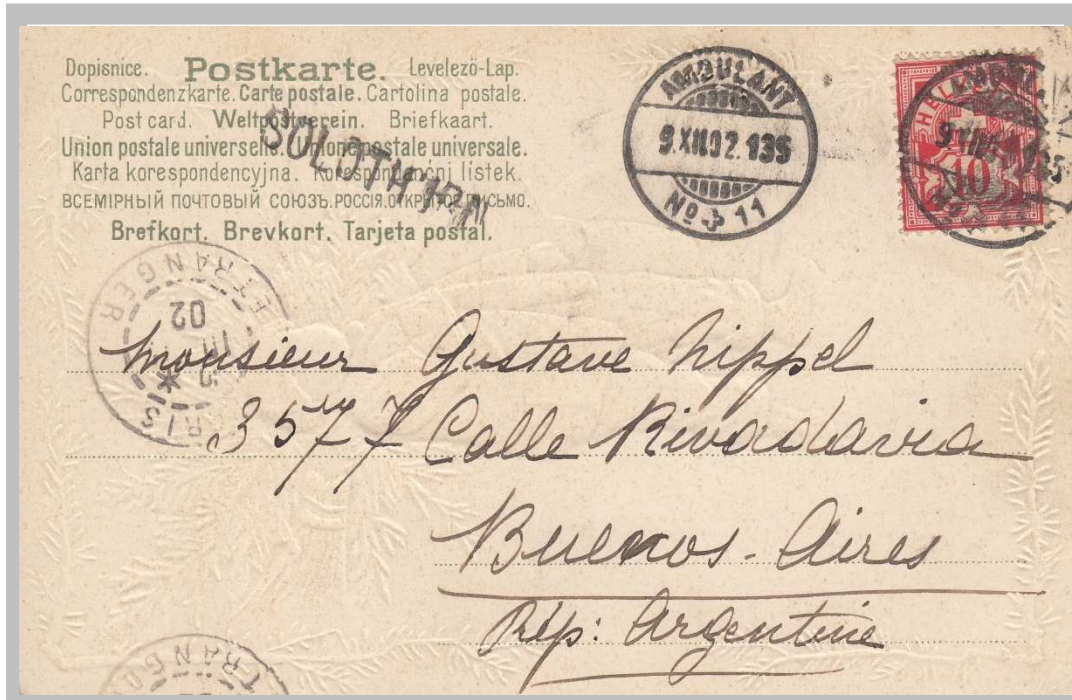 Dopisnice. Postkarte. Levelező-Lap.
Correspondenzkarte. Carte postale. Cartolina postale.
Post card. Weltpostverein. Briefkaart.
Union postale universelle. Unione postale universale.
Karta korespondencyjna. Korespondenční lístek.
ВСЕМІРНЫЙ ПОЧТОВЫЙ СОЮЗЪ. РОССІЯ. ОТКРЫТОЕ ПИСЬМО.
Brefkort. Brevkort. Tarjeta postal.
SOLOTHURN
AMBULANT
9.XII.02. 135
No 11
HELVETIA
10
ETRANGER
02
Monsieur Gustave Nippel
3577 Calle Rivadavia
Buenos-Aires
Rép: Argentine